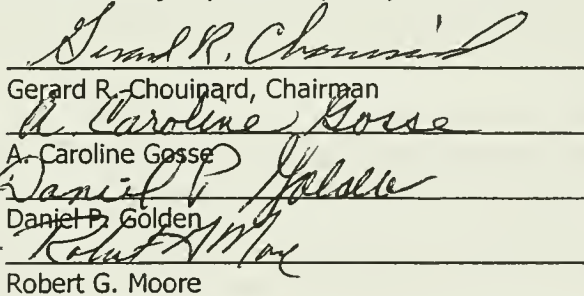 Gerard R. Chouinard
Gerard R. Chouinard, Chairman
A. Caroline Gosse
A. Caroline Gosse
Daniel P. Golden
Daniel P. Golden
Robert G Moore
Robert G. Moore